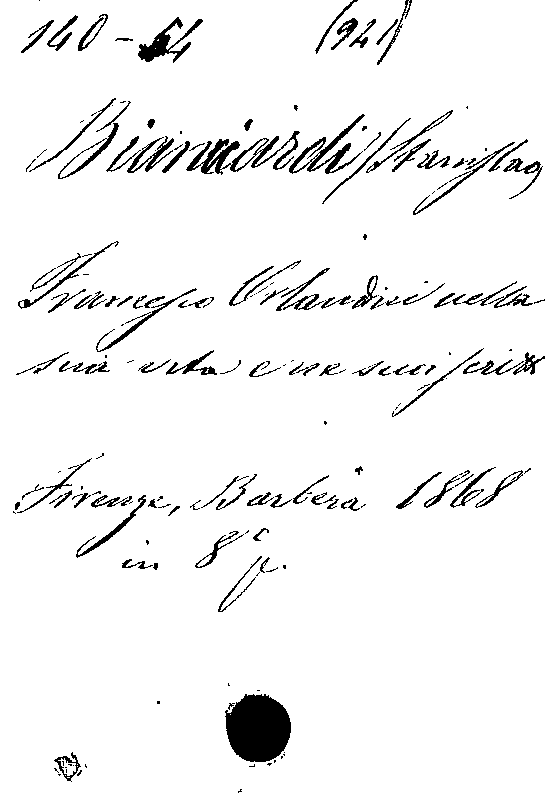 140-54 (941)
Bianciardi (Stanislao)
Francesco Orlandini nella
sua vita e ne suoi scritti
Firenze, Barbèra 1868
in 8° p.